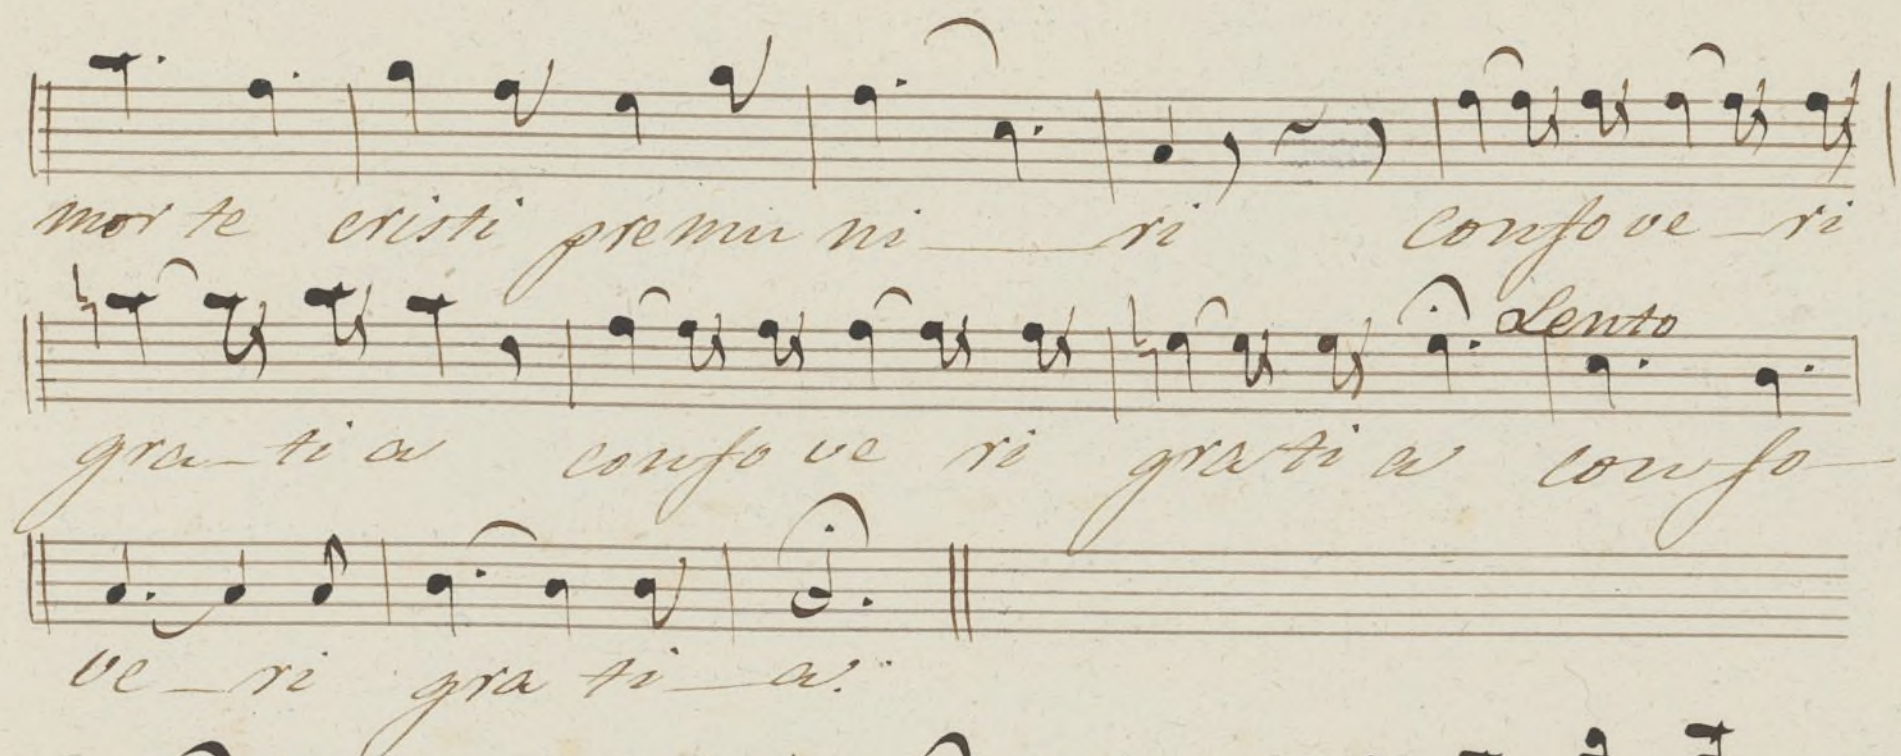 mor te cristi premu ni ri confove ri
Lento
gra ti a confo ve ri grati a confo
ve ri gra ti a.